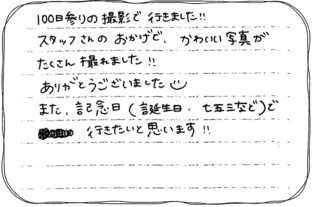 100日参りの撮影で行きました!!
スタッフさんのおかげで、かわいい写真が
たくさん撮れました!!
ありがとうございました
また、記念日(誕生日・七五三など)で
行きたいと思います!!